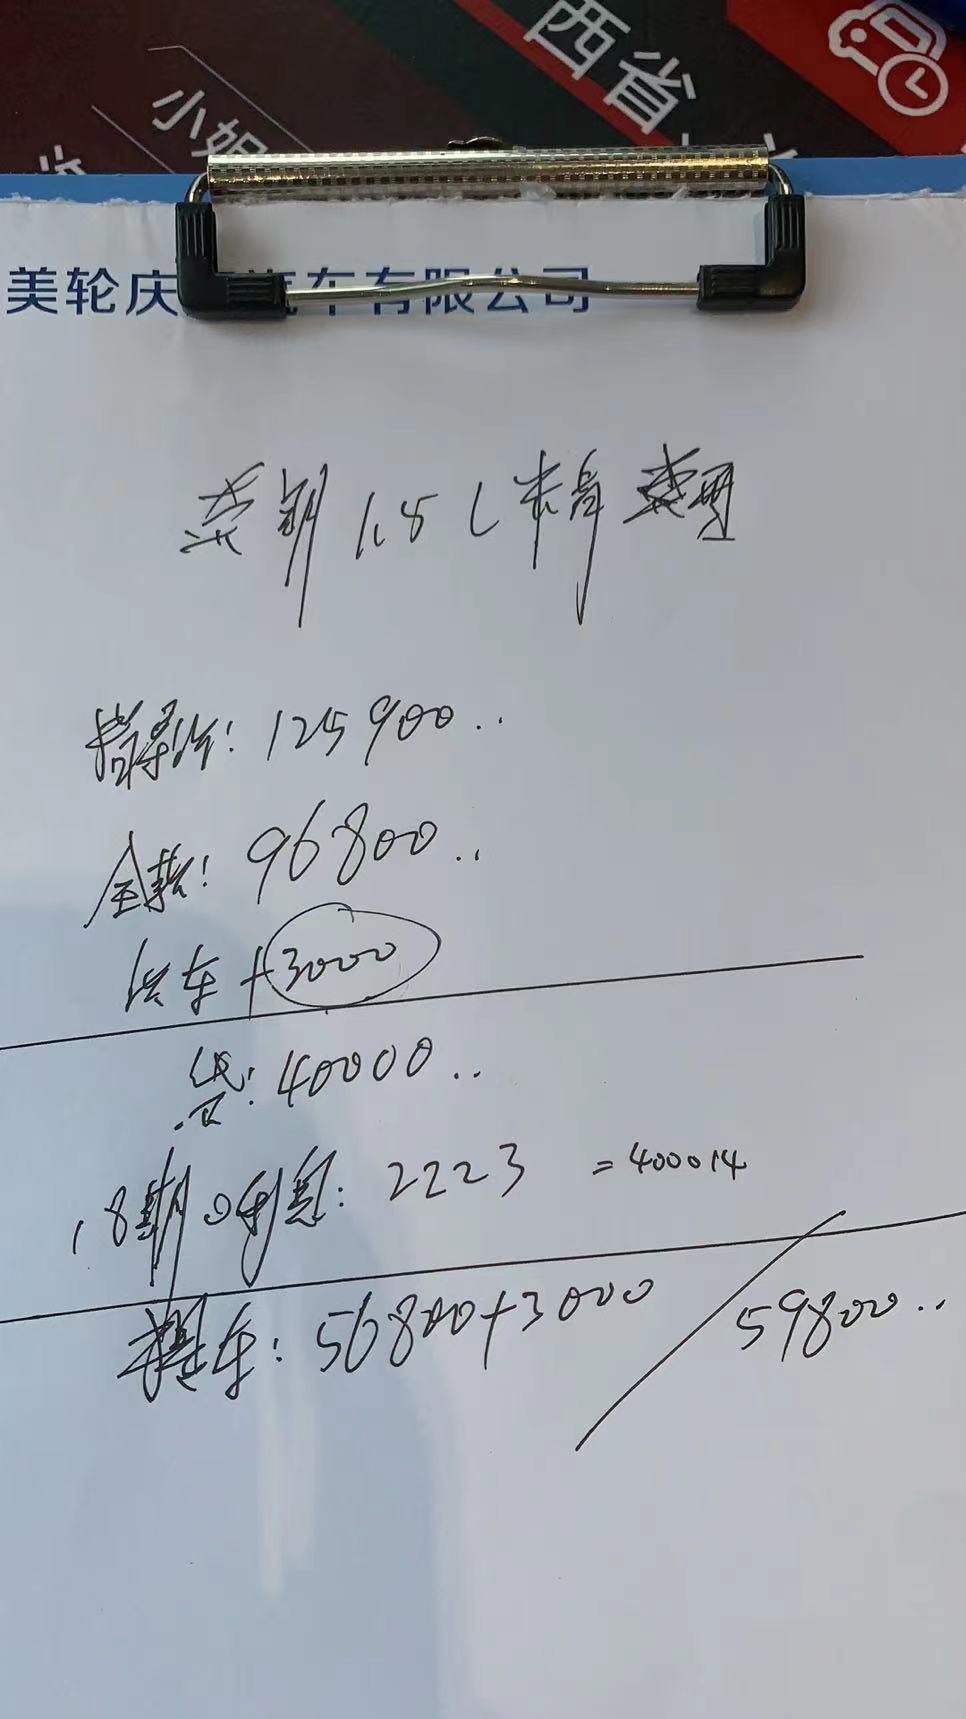 西省
小姐
美轮庆 汽车有限公司
荣朗1.5L 精英
指导价：125900..
全款：96800..
供车+3000
贷：40000..
18期0利息：2223 =400014
提车：56800+3000 / 59800..